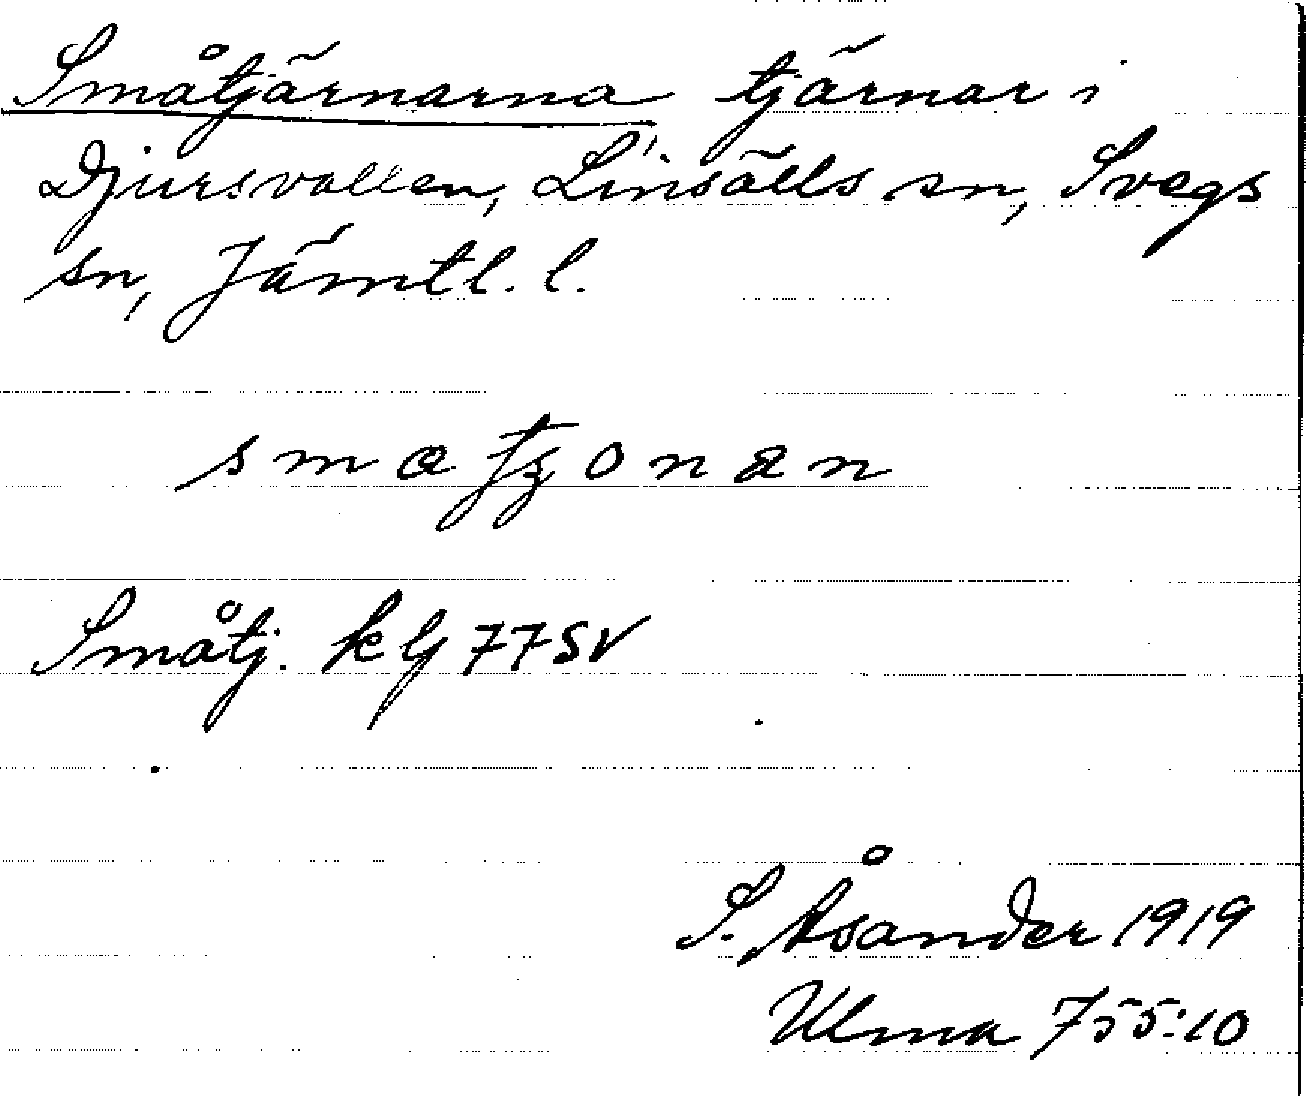 Småtjärnarna tjärnar i
Djursvallen, Linsälls sn, Svegs
sn, Jämtl. l.
Småtj. klj 77SV
S. Åsander 1919
Ulma 755:10